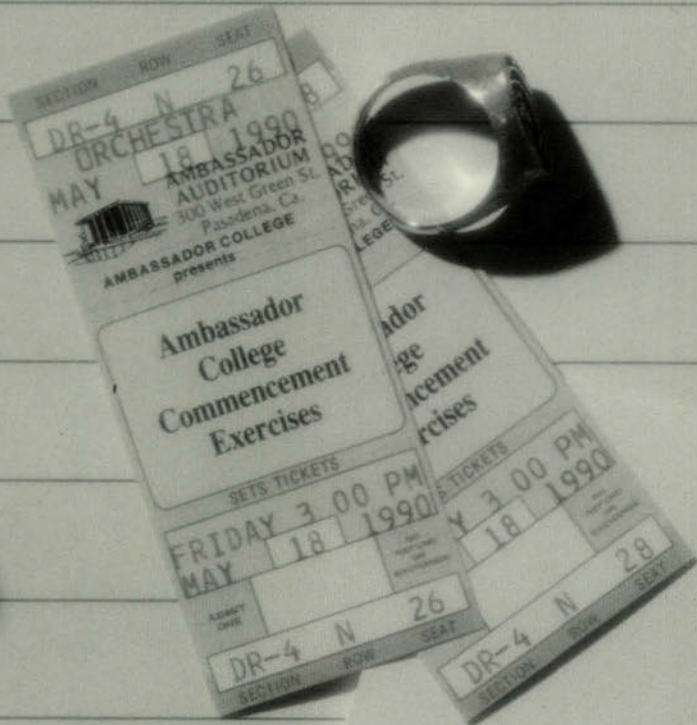 SECTION ROW SEAT
DR-4 N 26
ORCHESTRA
MAY 18 1990
AMBASSADOR
AUDITORIUM
300 West Green St.
Pasadena, Ca.
AMBASSADOR COLLEGE
presents
Ambassador
College
Commencement
Exercises
SETS TICKETS
FRIDAY 3 00 PM
MAY 18 1990
ADMIT
ONE
DR-4 N 26
SECTION ROW SEAT
8
Green St.
na, Ca.
LEGE
ador
ge
ncement
rcises
S TICKETS
Y 3 00 PM
18 1990
DR-4 N 28
SECTION ROW SEAT